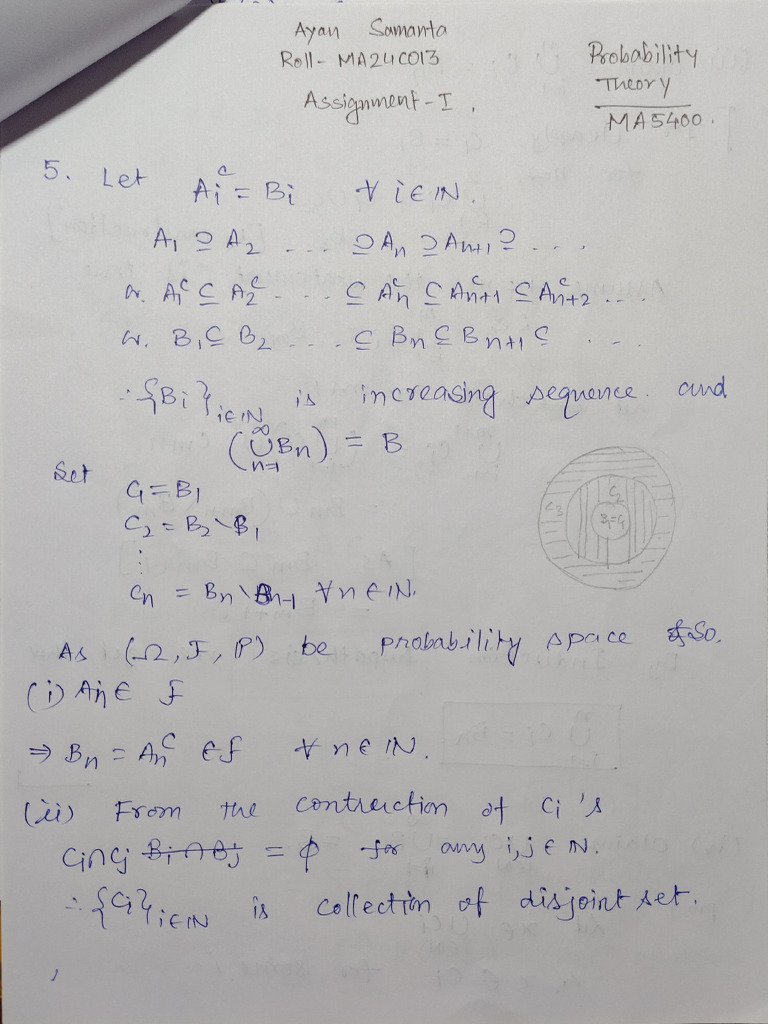 Ayan Samanta
Roll- MA24C013
Probability
Theory
Assignment - I.
MA5400.
5. Let Aᵢᶜ = Bᵢ ∀ i ∈ ℕ.
A₁ ⊇ A₂ ... ⊇ Aₙ ⊇ Aₙ₊₁ ⊇ ...
or. A₁ᶜ ⊆ A₂ᶜ ... ⊆ Aₙᶜ ⊆ Aₙ₊₁ᶜ ⊆ Aₙ₊₂ᶜ ...
or. B₁ ⊆ B₂ ... ⊆ Bₙ ⊆ Bₙ₊₁ ⊆ ...
∴ {Bᵢ}ᵢ∈ℕ is increasing sequence. and
(∪ₙ₌₁^∞ Bₙ) = B
Set
C₁ = B₁
C₂ = B₂ \ B₁
⋮
Cₙ = Bₙ \ Bₙ₋₁ ∀ n ∈ ℕ.
C₃
C₂
B₁ = C₁
As (Ω, F, P) be probability space So.
(i) Aₙ ∈ F
⇒ Bₙ = Aₙᶜ ∈ F ∀ n ∈ ℕ.
(ii) From the contruction of Cᵢ's
Cᵢ ∩ Cⱼ ~~Bᵢ ∩ Bⱼ~~ = ϕ for any i, j ∈ ℕ.
∴ {Cᵢ}ᵢ∈ℕ is collection of disjoint set.